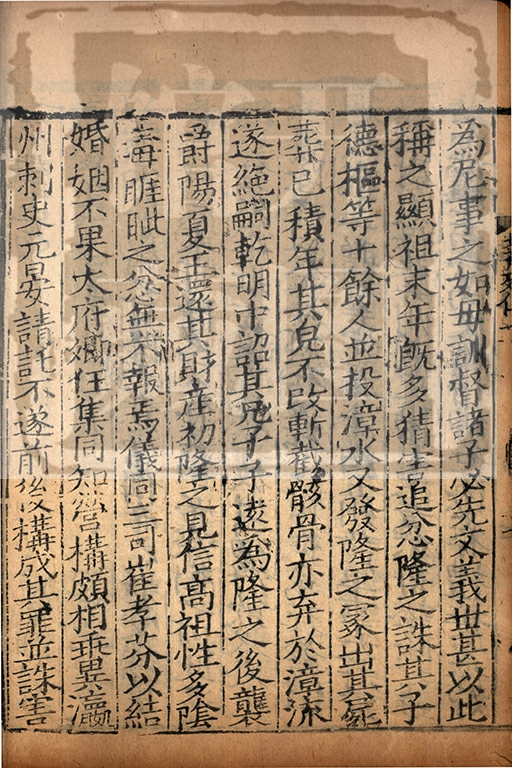 為尼事之如母訓督諸子必先文義世甚以此
稱之顯祖末年既多猜害追忿隆之誅其子
德樞等十餘人並投漳水又發隆之冢出其屍
葬已積年其皃不改斬截骸骨亦弃於漳流
遂絶嗣乾明中詔其兄子子遠為隆之後襲
爵陽夏王還其財産初隆之見信高祖性多陰
毒睚眦之忿無不報焉儀同三司崔孝芬以結
婚姻不果太府卿任集同知營構頗相乖異瀛
州刺史元晏請託不遂前後構成其罪並誅害